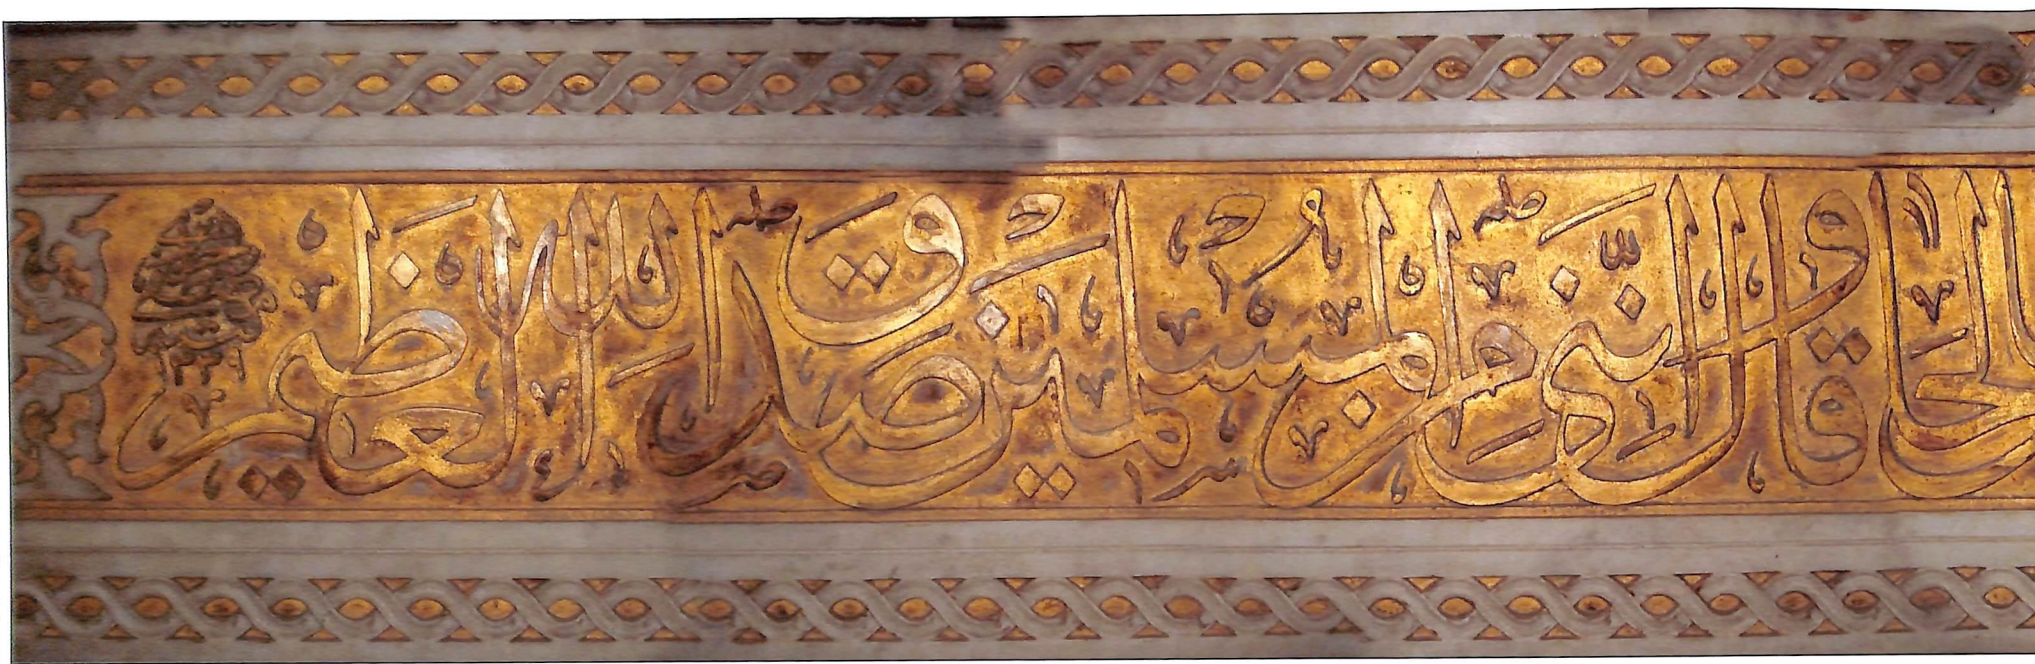 صالحا وقال إنني من المسلمين صدق الله العظيم